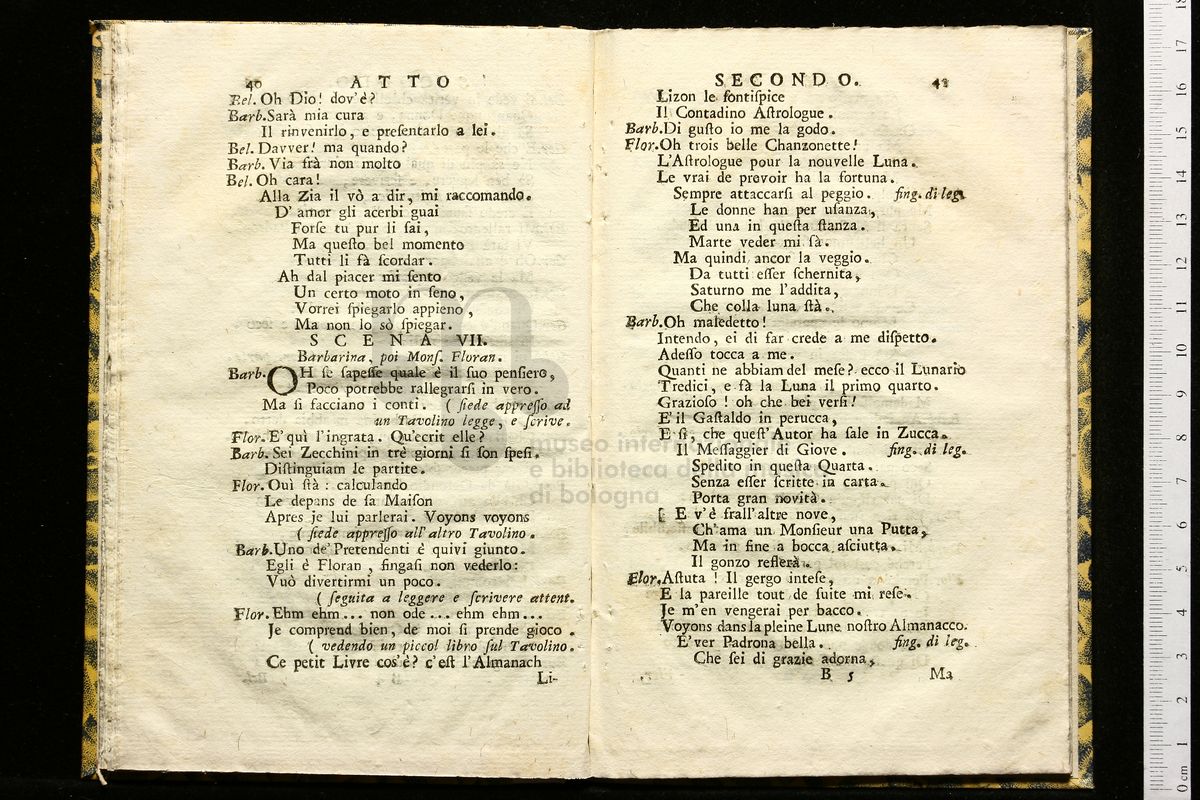 40 ATTO
Bel. Oh Dio! dov'è?
Barb. Sarà mia cura
Il rinvenirlo, e preſentarlo a lei.
Bel. Davver! ma quando?
Barb. Via frà non molto
Bel. Oh cara!
Alla Zia il vò a dir, mi raccomando.
D' amor gli acerbi guai
Forſe tu pur li ſai,
Ma queſto bel momento
Tutti li fà ſcordar.
Ah dal piacer mi ſento
Un certo moto in ſeno,
Vorrei ſpiegarlo appieno,
Ma non lo sò ſpiegar.
SCENA VII.
Barbarina, poi Monſ. Floran.
Barb. OH ſe ſapeſſe quale è il ſuo penſiero,
Poco potrebbe rallegrarſi in vero.
Ma ſi facciano i conti. ( ſiede appreſſo ad
un Tavolino legge, e ſcrive.
Flor. E' quì l'ingrata. Qu'ecrit elle?
Barb. Sei Zecchini in trè giorni ſi ſon ſpeſi.
Diſtinguiam le partite.
Flor. Ouì ſtà: calculando
Le depans de ſa Maiſon
Apres je lui parlerai. Voyons voyons
( ſiede appreſſo all'altro Tavolino.
Barb. Uno de' Pretendenti è quivi giunto.
Egli è Floran, fingaſi non vederlo:
Vuò divertirmi un poco.
( ſeguita a leggere e ſcrivere attent.
Flor. Ehm ehm... non ode... ehm ehm...
Je comprend bien, de moi ſi prende gioco.
( vedendo un piccol libro ſul Tavolino.
Ce petit Livre cos'è? c'eſt l'Almanach
Li-
SECONDO. 41
Lizon le fontiſpice
Il Contadino Aſtrologue.
Barb. Di guſto io me la godo.
Flor. Oh trois belle Chanzonette!
L'Aſtrologue pour la nouvelle Luna.
Le vrai de prevoir ha la fortuna.
Sempre attaccarſi al peggio. fing. di leg.
Le donne han per uſanza,
Ed una in queſta ſtanza.
Marte veder mi fà.
Ma quindi ancor la veggio.
Da tutti eſſer ſchernita,
Saturno me l'addita,
Che colla luna ſtà.
Barb. Oh maledetto!
Intendo, ei di far crede a me diſpetto.
Adeſſo tocca a me.
Quanti ne abbiam del meſe? ecco il Lunario
Tredici, e fà la Luna il primo quarto.
Grazioſo! oh che bei verſi!
E' il Gaſtaldo in perucca,
E ſi, che queſt'Autor ha ſale in Zucca.
Il Meſſaggier di Giove. fing. di leg.
Spedito in queſta Quarta.
Senza eſſer ſcritte in carta.
Porta gran novità.
E v'è frall'altre nove,
Ch'ama un Monſieur una Putta,
Ma in fine a bocca aſciutta.
Il gonzo reſterà.
Flor. Aſtuta! Il gergo inteſe,
E la pareille tout de ſuite mi reſe.
Je m'en vengerai per bacco.
Voyons dans la pleine Lune noſtro Almanacco.
E' ver Padrona bella. fing. di leg.
Che ſei di grazie adorna,
B 5 Ma
museo internazionale
e biblioteca della musica
di bologna
0 cm 1 2 3 4 5 6 7 8 9 10 11 12 13 14 15 16 17 18